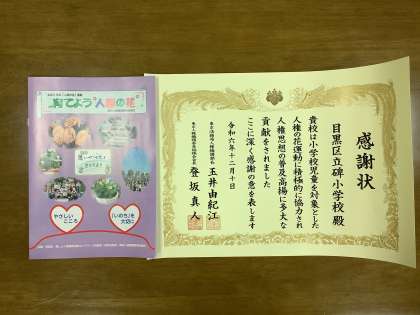 育てよう"人権の花"
やさしい
こころ
「いのち」を
大切に
感謝状
目黒区立碑小学校殿
貴校は小学校児童を対象とした
人権の花運動に積極的に協力され
人権思想の普及高揚に多大な
貢献をされました
ここに深く感謝の意を表します
令和六年十二月十日
玉井由紀江
登坂真人